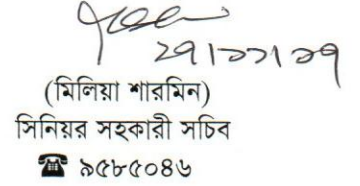 ২৭।১১।১৭
(মিলিয়া শারমিন)
সিনিয়র সহকারী সচিব
☎ ৯৫৮৫০৪৬